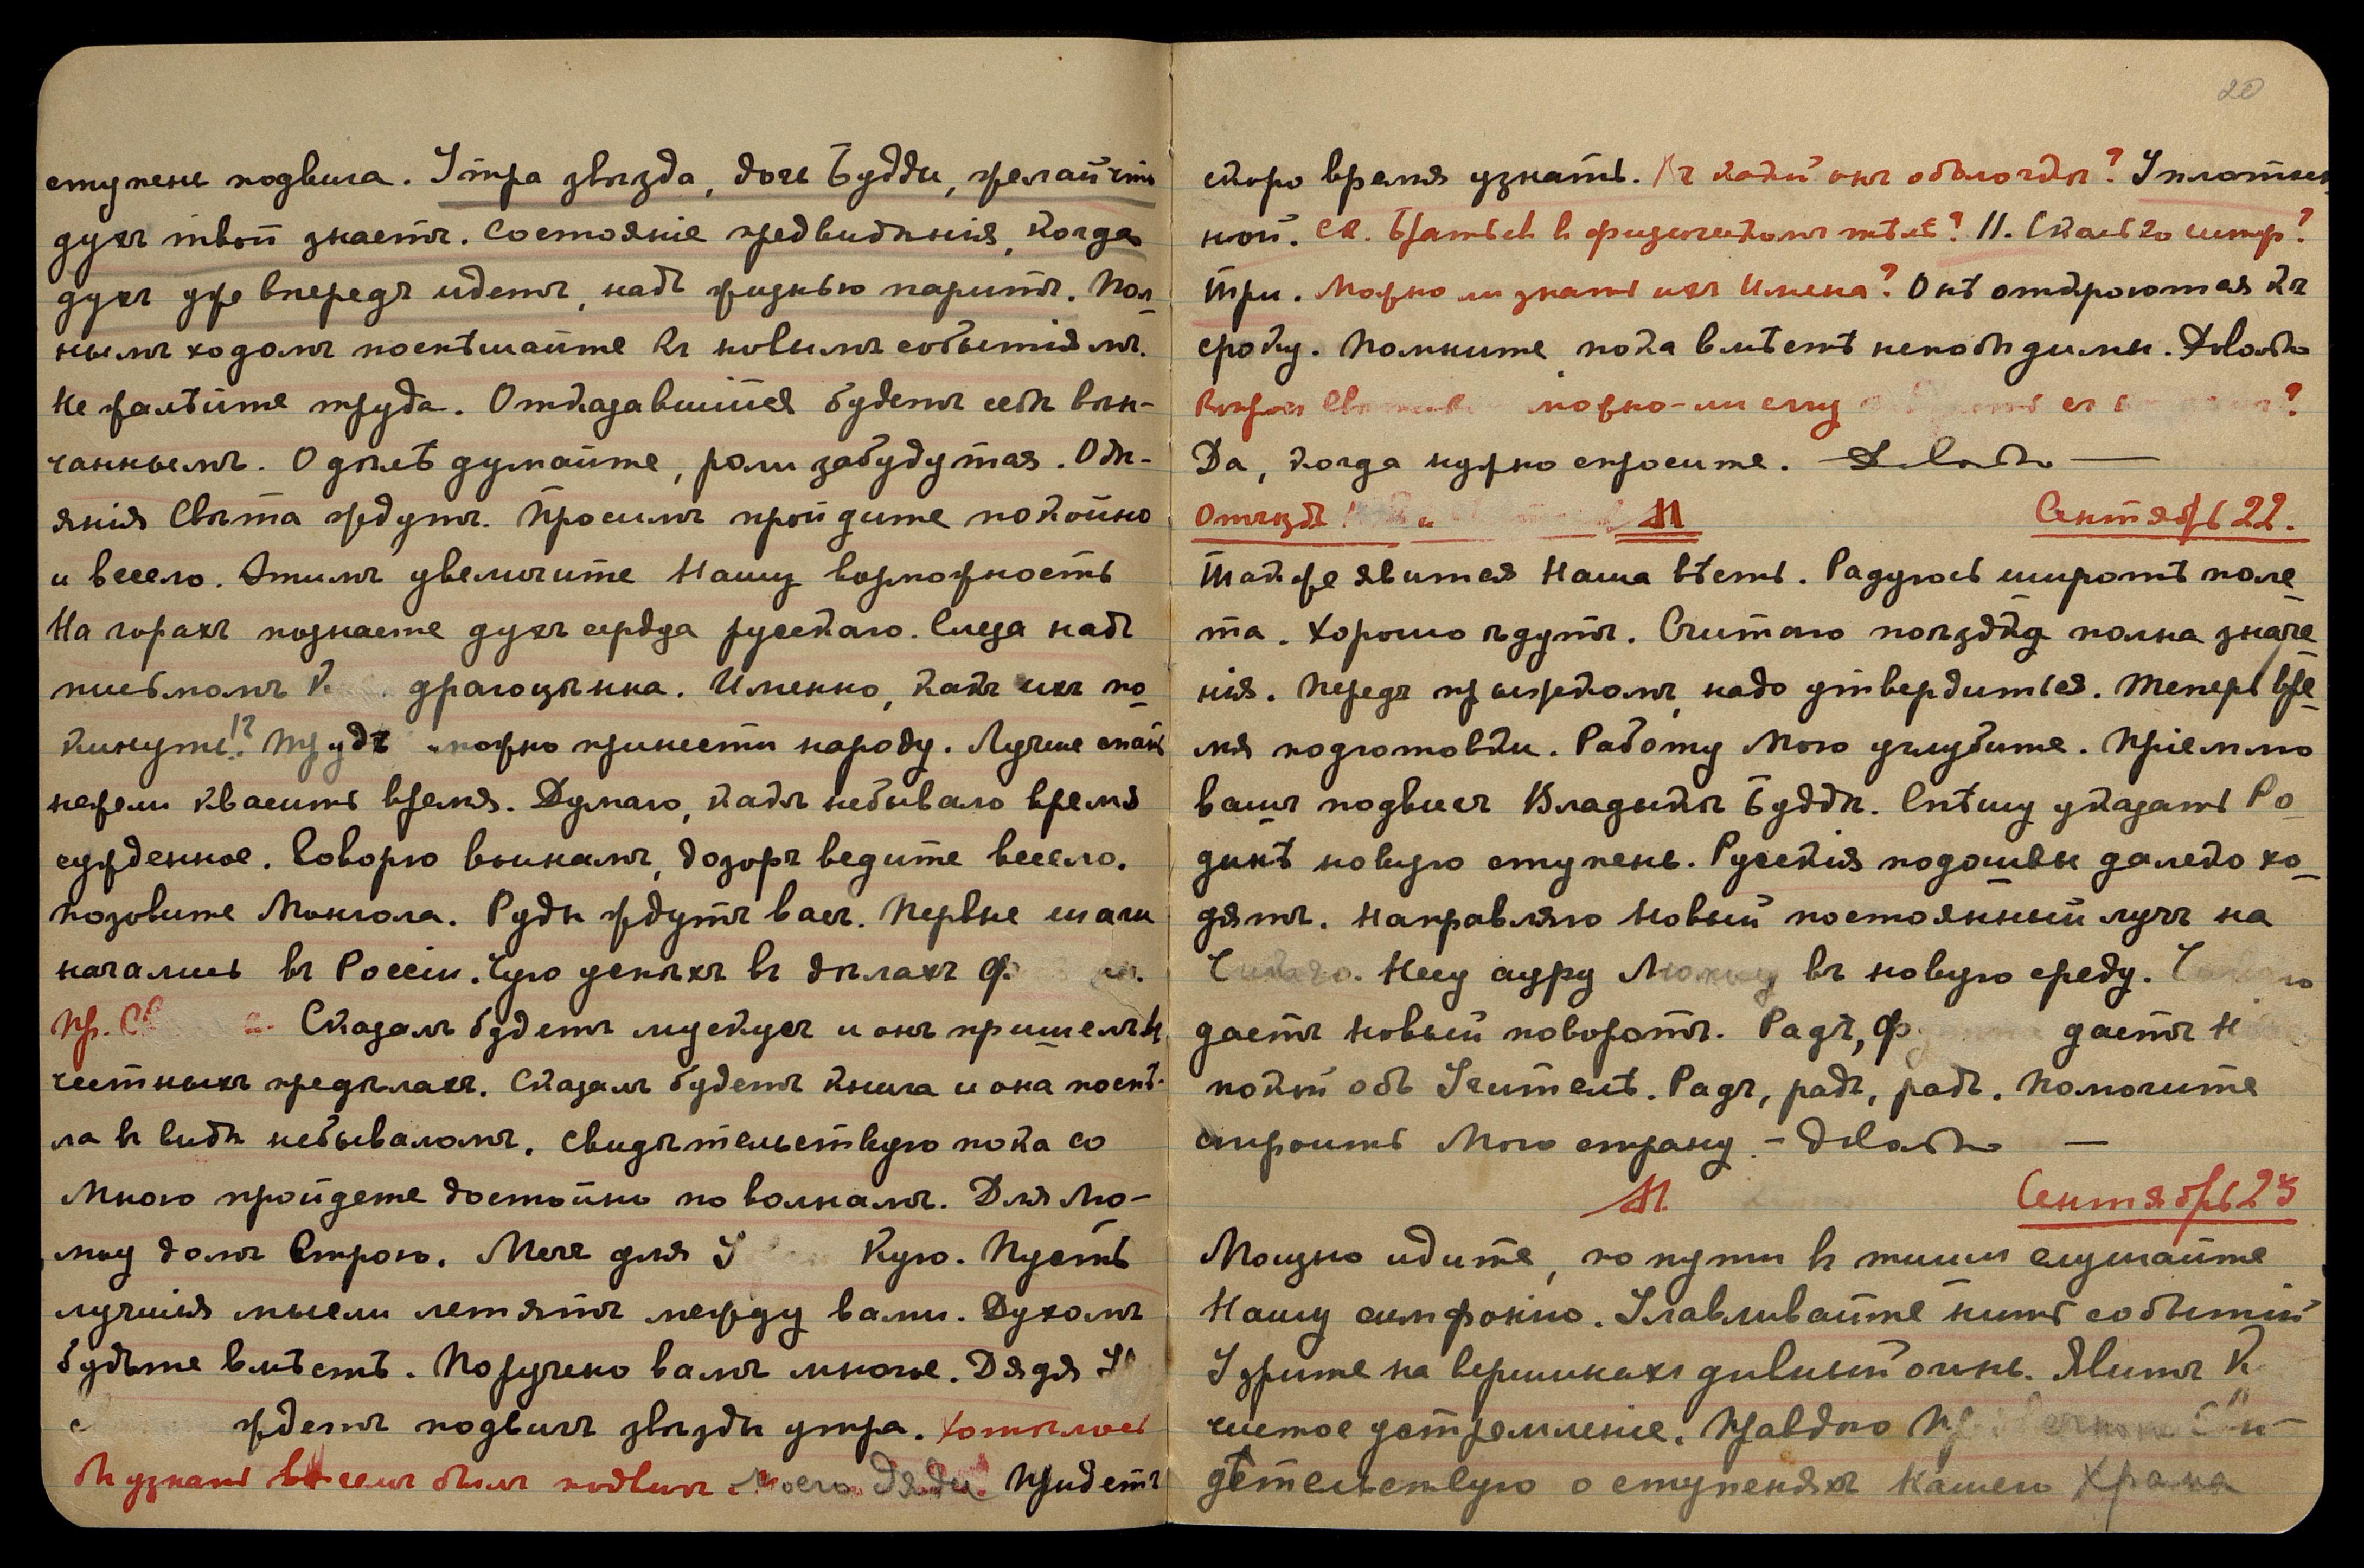 ступень подвига. Утра звѣзда, дочь Будды, желай что
духъ твой знаетъ. Состояніе предвидѣнія, когда
духъ уже впередъ идетъ, надъ жизнью паритъ. Пол-
нымъ ходомъ поспѣшайте къ новымъ событіямъ.
Не жалѣйте труда. Отказавшійся будетъ себѣ вѣн-
чаннымъ. О дѣлѣ думайте, роли забудутся. Одѣ-
янія Свѣта ждутъ. Просимъ пройдите покойно
и весело. Этимъ увеличите Нашу возможность
На горахъ познаете духъ сердца русскаго. Слеза надъ
письмомъ К драгоцѣнна. Именно, какъ ихъ по-
кинуть!? Трудъ можно принести народу. Лучше спать
нежели квасить время. Думаю, какъ небывало время
сужденное. Говорю воинамъ, дозоръ ведите весело.
Позовите Монгола. Руды ждутъ васъ. Первые шаги
начались въ Россіи. Чую успѣхъ въ дѣлахъ Ф
Пр. Св Сказалъ будетъ мускусъ и онъ пришелъ въ
честныхъ предѣлахъ. Сказалъ будетъ книга и она поспѣ-
ла въ видѣ небываломъ. Свидѣтельствую пока со
Мною пройдете достойно по волнамъ. Для Мо-
мъ строю. Мечъ для У Кую. Пусть
лучшія мысли летятъ между вами. Духомъ
будьте вмѣстѣ. Поручено вамъ многое. Дядя
ждетъ подвигъ звѣзды утра. Хотѣлось
бы узнать въ чемъ былъ подвигъ моего Дяди? Придетъ
20
скоро время узнать. Въ какой онъ оболочкѣ? Уплотнен
ной. Ск. Братьевъ въ физическомъ тѣлѣ? 11. Сколько
Три. Можно ли знать ихъ Имена? Онѣ откроются къ
сроку. Помните пока вмѣстѣ непобѣдимы.
можно-ли ему ?
Да, когда нужно спросите.
Отъѣздъ и М Сентябрь 22.
Также явится Наша вѣсть. Радуюсь широтѣ поле-
та. Хорошо ѣдутъ. Считаю поѣздка полна значе-
нія. Передъ прыжкомъ, надо утвердиться. Теперь вре-
мя подготовки. Работу Мою углубите. Пріемлю
вашъ подвигъ Владыкѣ Буддѣ. Спѣшу указать Ро-
динѣ новую ступень. Русскія подошвы далеко хо-
дятъ. Направляю Новый постоянный лучъ на
Чикаго. Несу ауру Люмоу въ новую среду.
даетъ новый поворотъ. Радъ, Ф даетъ
покой объ Учителѣ. Радъ, радъ, радъ. Помогите
строить Мою страну –
М. Сентябрь 23
Мощно идите, по пути въ тиши слушайте
Нашу симфонію. Улавливайте нить событій
Узрите на вершинахъ дивный огнь. Явитъ К
чистое устремленіе. Правдою Сви-
дѣтельствую о ступеняхъ Нашего Храма